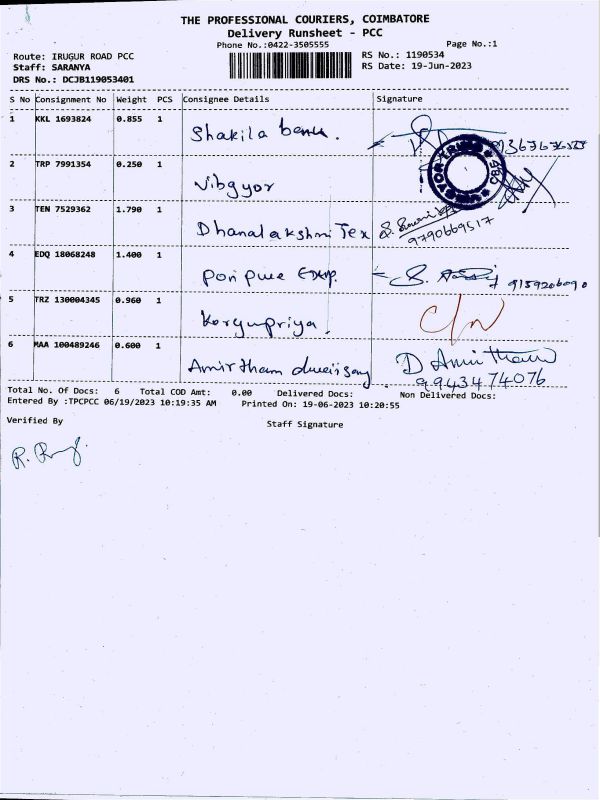 THE PROFESSIONAL COURIERS, COIMBATORE
Delivery Runsheet - PCC
Phone No.:0422-3505555
Page No.:1
Route: IRUGUR ROAD PCC
RS No.: 1190534
Staff: SARANYA
RS Date: 19-Jun-2023
DRS No.: DCJB119053401
S No Consignment No Weight PCS Consignee Details Signature
1 KKL 1693824 0.855 1 Shakila
2 TRP 7991354 0.250 1 Vibgyor
3 TEN 7529362 1.790 1 Dhanalakshmi Tex
9790669517
4 EDQ 18068248 1.400 1 Pon pure
9159206090
5 TRZ 130004345 0.960 1 C/N
6 MAA 100489246 0.600 1 Amirtham D
9943474076
Total No. Of Docs: 6 Total COD Amt: 0.00 Delivered Docs: Non Delivered Docs:
Entered By :TPCPCC 06/19/2023 10:19:35 AM Printed On: 19-06-2023 10:20:55
Verified By
Staff Signature